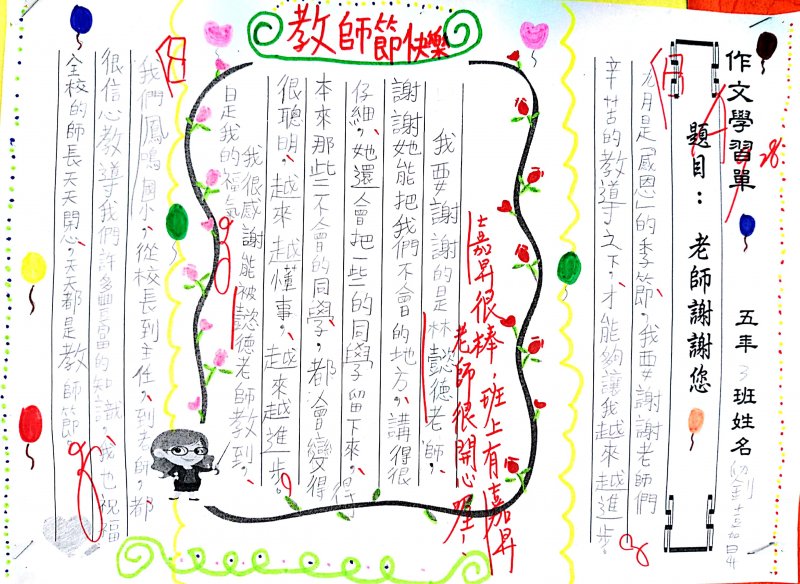 教師節快樂
作文學習單
五年3班姓名
28
題目：老師謝謝您
九月是「感恩」的季節，我要謝謝老師們
辛苦的教導之下，才能夠讓我越來越進步。
我要謝謝的是林懿德老師，
謝謝她能把我們不會的地方，講得很
仔細，她還會把一些的同學留下來，得
本來那些不會的同學，都會變得
很聰明，越來越懂事，越來越進步。
我很感謝能被懿德老師教到，
是我的福氣。
嘉昇很棒，班上有嘉昇
老師很開心
我們鳳鳴國小，從校長到主任，到老師，都
很信心教導我們許多豐富的知識，我也祝福
全校的師長天天開心，天天都是教師節。